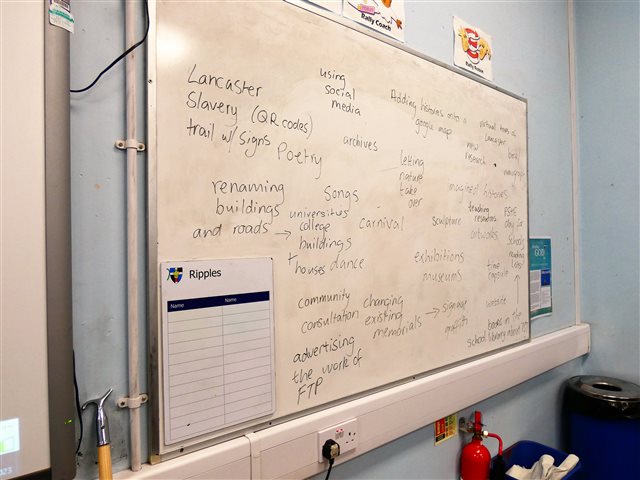 Rally Coach
Lancaster
Slavery (QR codes)
trail w/ signs
Poetry
using
social
media
archives
Adding histories onto a
google map
virtual tours of
Lancaster
new
research
letting
nature
take
over
imagined histories
renaming
buildings
and roads →
universities
college
buildings
+
houses
Songs
carnival
dance
sculpture
teaching
resources
artworks
PSHE
day for
schools
reading
lists
exhibitions
museums
time
capsule
website
books in the
school library about
community
consultation
changing
existing
memorials → signage
graffiti
advertising
the work of
FTP
Ripples
Name Name
GOD
023